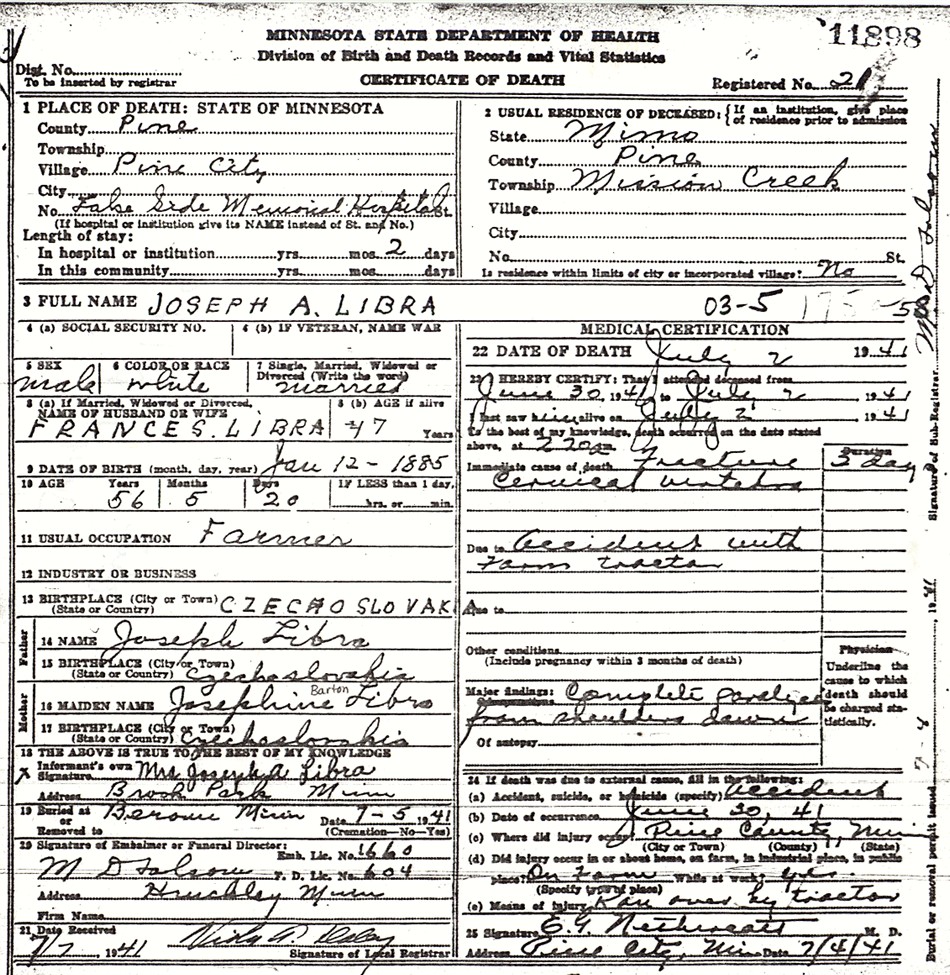 11898
MINNESOTA STATE DEPARTMENT OF HEALTH
Division of Birth and Death Records and Vital Statistics
CERTIFICATE OF DEATH
Dist. No.
To be inserted by registrar
Registered No. 21
1 PLACE OF DEATH: STATE OF MINNESOTA
County Pine
Township
Village Pine City
City
No. Memorial Hospital St.
(If hospital or institution give its NAME instead of St. and No.)
Length of stay:
In hospital or institution yrs. mos. 2 days
In this community yrs. mos. days
2 USUAL RESIDENCE OF DECEASED: {If an institution, give place of residence prior to admission
State Minn
County Pine
Township Mission Creek
Village
City
No. St.
Is residence within limits of city or incorporated village? No
3 FULL NAME JOSEPH A. LIBRA 03-5
4 (a) SOCIAL SECURITY NO.
4 (b) IF VETERAN, NAME WAR
5 SEX male
6 COLOR OR RACE white
7 Single, Married, Widowed or Divorced (Write the word) married
8 (a) If Married, Widowed or Divorced, NAME OF HUSBAND OR WIFE FRANCES. LIBRA
8 (b) AGE if alive 47 Years
9 DATE OF BIRTH (month, day, year) Jan 12 - 1885
10 AGE Years 56 Months 5 Days 20 IF LESS than 1 day, hrs. or min.
11 USUAL OCCUPATION Farmer
12 INDUSTRY OR BUSINESS
13 BIRTHPLACE (City or Town) (State or Country) CZECHOSLOVAKIA
Father
14 NAME Joseph Libra
15 BIRTHPLACE (City or Town) (State or Country) Czechoslovakia
Mother
16 MAIDEN NAME Josephine Barton Libra
17 BIRTHPLACE (City or Town) (State or Country) Czechoslovakia
18 THE ABOVE IS TRUE TO THE BEST OF MY KNOWLEDGE
Informant's own Signature Mrs Joseph A Libra
Address Brook Park Minn
19 Buried at or Removed to Beroun Minn Date 7-5 1941
(Cremation—No—Yes)
20 Signature of Embalmer or Funeral Director: Emb. Lic. No. 1660
M D Folsom F. D. Lic. No. 604
Address Hinckley Minn
Firm Name
21 Date Received 7/7, 1941
Signature of Local Registrar
MEDICAL CERTIFICATION
22 DATE OF DEATH July 2 1941
23 I HEREBY CERTIFY: That I attended deceased from
June 30, 1941 to July 2 1941
I last saw him alive on July 2 1941
To the best of my knowledge, death occurred on the date stated
above, at 2 20 a m.
Immediate cause of death Fracture Duration 3 day
Cervical vertebra
Due to Accident with
Farm tractor
Due to
Other conditions
(Include pregnancy within 3 months of death)
Major findings: Complete paralysis
from shoulders down
Of autopsy
Physician
Underline the cause to which death should be charged statistically.
24 If death was due to external cause, fill in the following:
(a) Accident, suicide, or homicide (specify) Accident
(b) Date of occurrence June 30, 41
(c) Where did injury occur? Pine County, Minn
(City or Town) (County) (State)
(d) Did injury occur in or about home, on farm, in industrial place, in public
place? On Farm While at work? yes
(Specify type of place)
(e) Means of injury Ran over by tractor
25 Signature E. G. Nethercott M. D.
Address Pine City, Minn Date 7/4/41
Signature of Sub-Registrar
Burial or removal permit issued 7-4, 1941